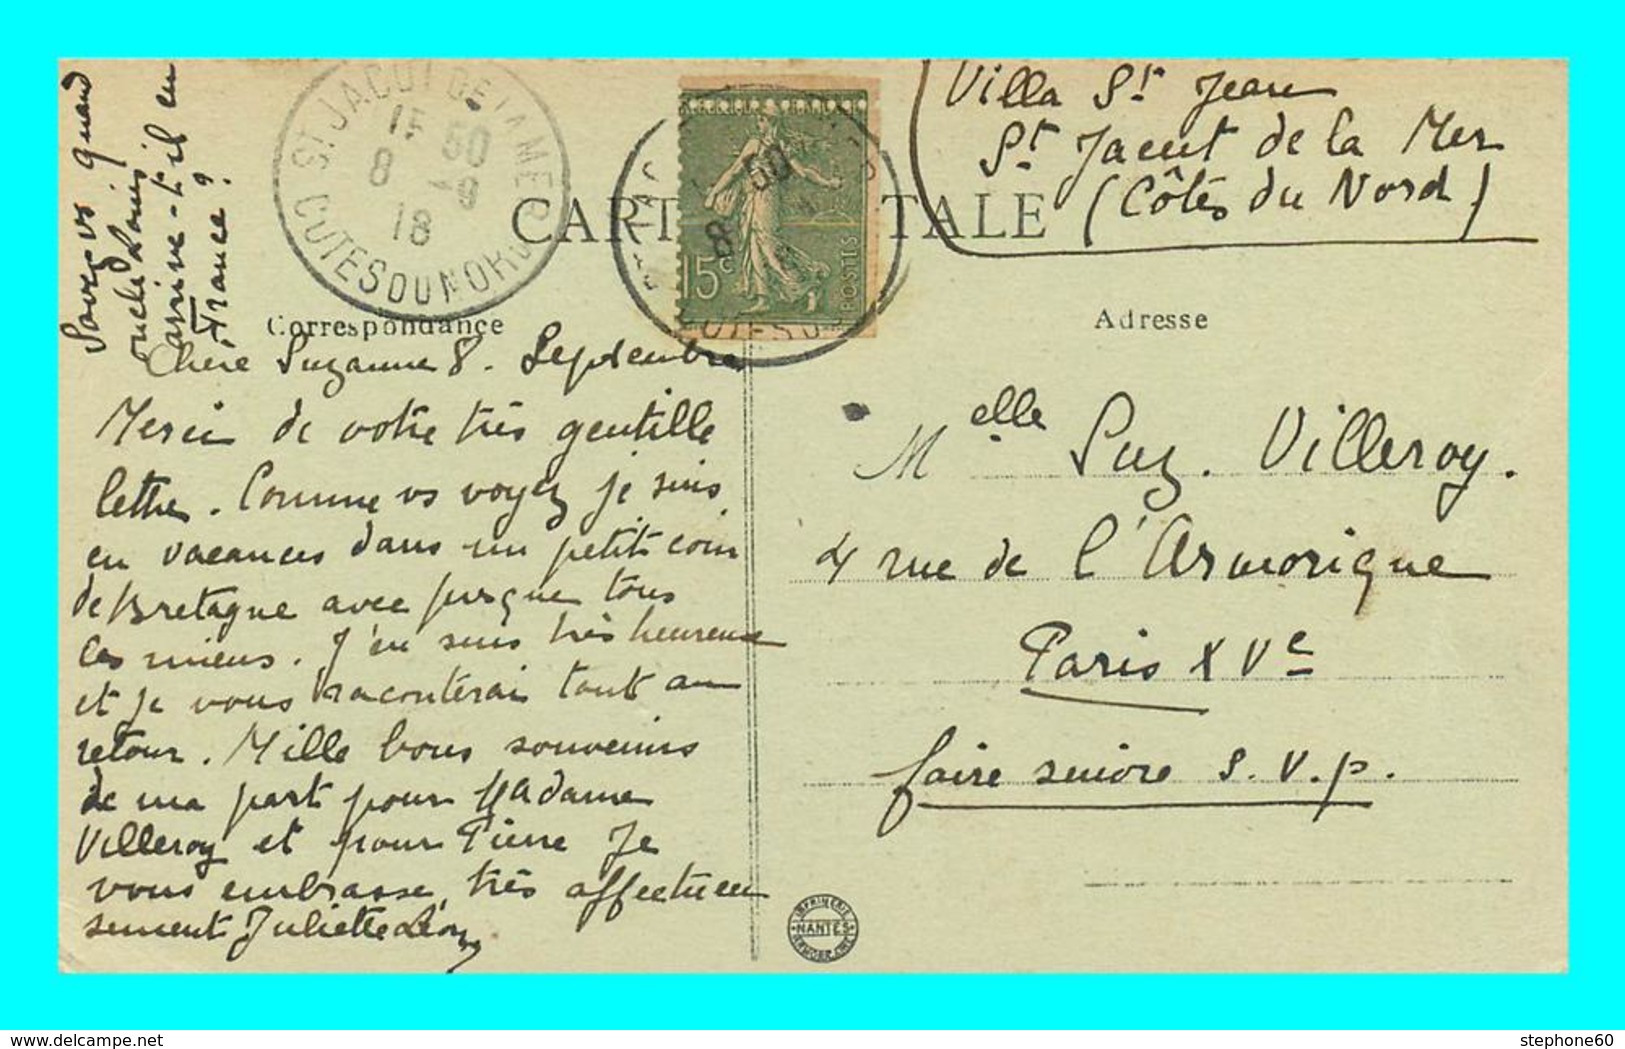 Savez vs quand
oncle Louis
arrive-t-il en
France ?
ST JACUT DE LA MER
15 50
8 -9
18
COTES DU NORD
CARTE POSTALE
50
8
15c
POSTES
COTES DU
Villa St Jean
St Jacut de la Mer
(Côtes du Nord)
Correspondance
Adresse
Chère Suzanne 8. Septembre
Merci de votre très gentille
lettre. Comme vs voyez je suis
en vacances dans un petit coin
de Bretagne avec presque tous
les miens. J'en suis très heureuse
et je vous raconterai tout au
retour. Mille bons souvenirs
de ma part pour Madame
Villeroy et pour Pierre Je
vous embrasse, très affectueu
sement Juliette Léon
Melle Suz. Villeroy.
4 rue de l'Armorique
Paris XVe
faire suivre S.V.p.
IMPRIMERIE
NANTES
ARMORICAINE
stephone60